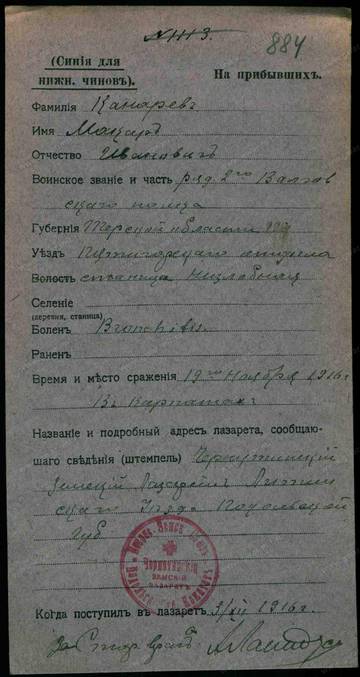 884
(Синія для
нижн. чиновъ).
На прибывшихъ.
Фамилія Канаревъ
Имя Макаръ
Отчество Ивановичъ
Воинское званіе и часть ряд. 2го
скаго полка
Губернія Терской области
Уѣздъ Пятигорскаго отдѣла
Волость станица Незлобная
Селеніе
(деревня, станица)
Боленъ Bronchitis
Раненъ
Время и мѣсто сраженія 19го Ноября 1916 г
Въ Карпатахъ
Названіе и подробный адресъ лазарета, сообщаю-
щаго свѣдѣнія (штемпель)
Земскій Лазаретъ
скаго Уѣзда Подольской
губ
ЗЕМСКІЙ
ЛАЗАРЕТЪ
Когда поступилъ въ лазаретъ 3/XII 1916 г.
За Старш врача